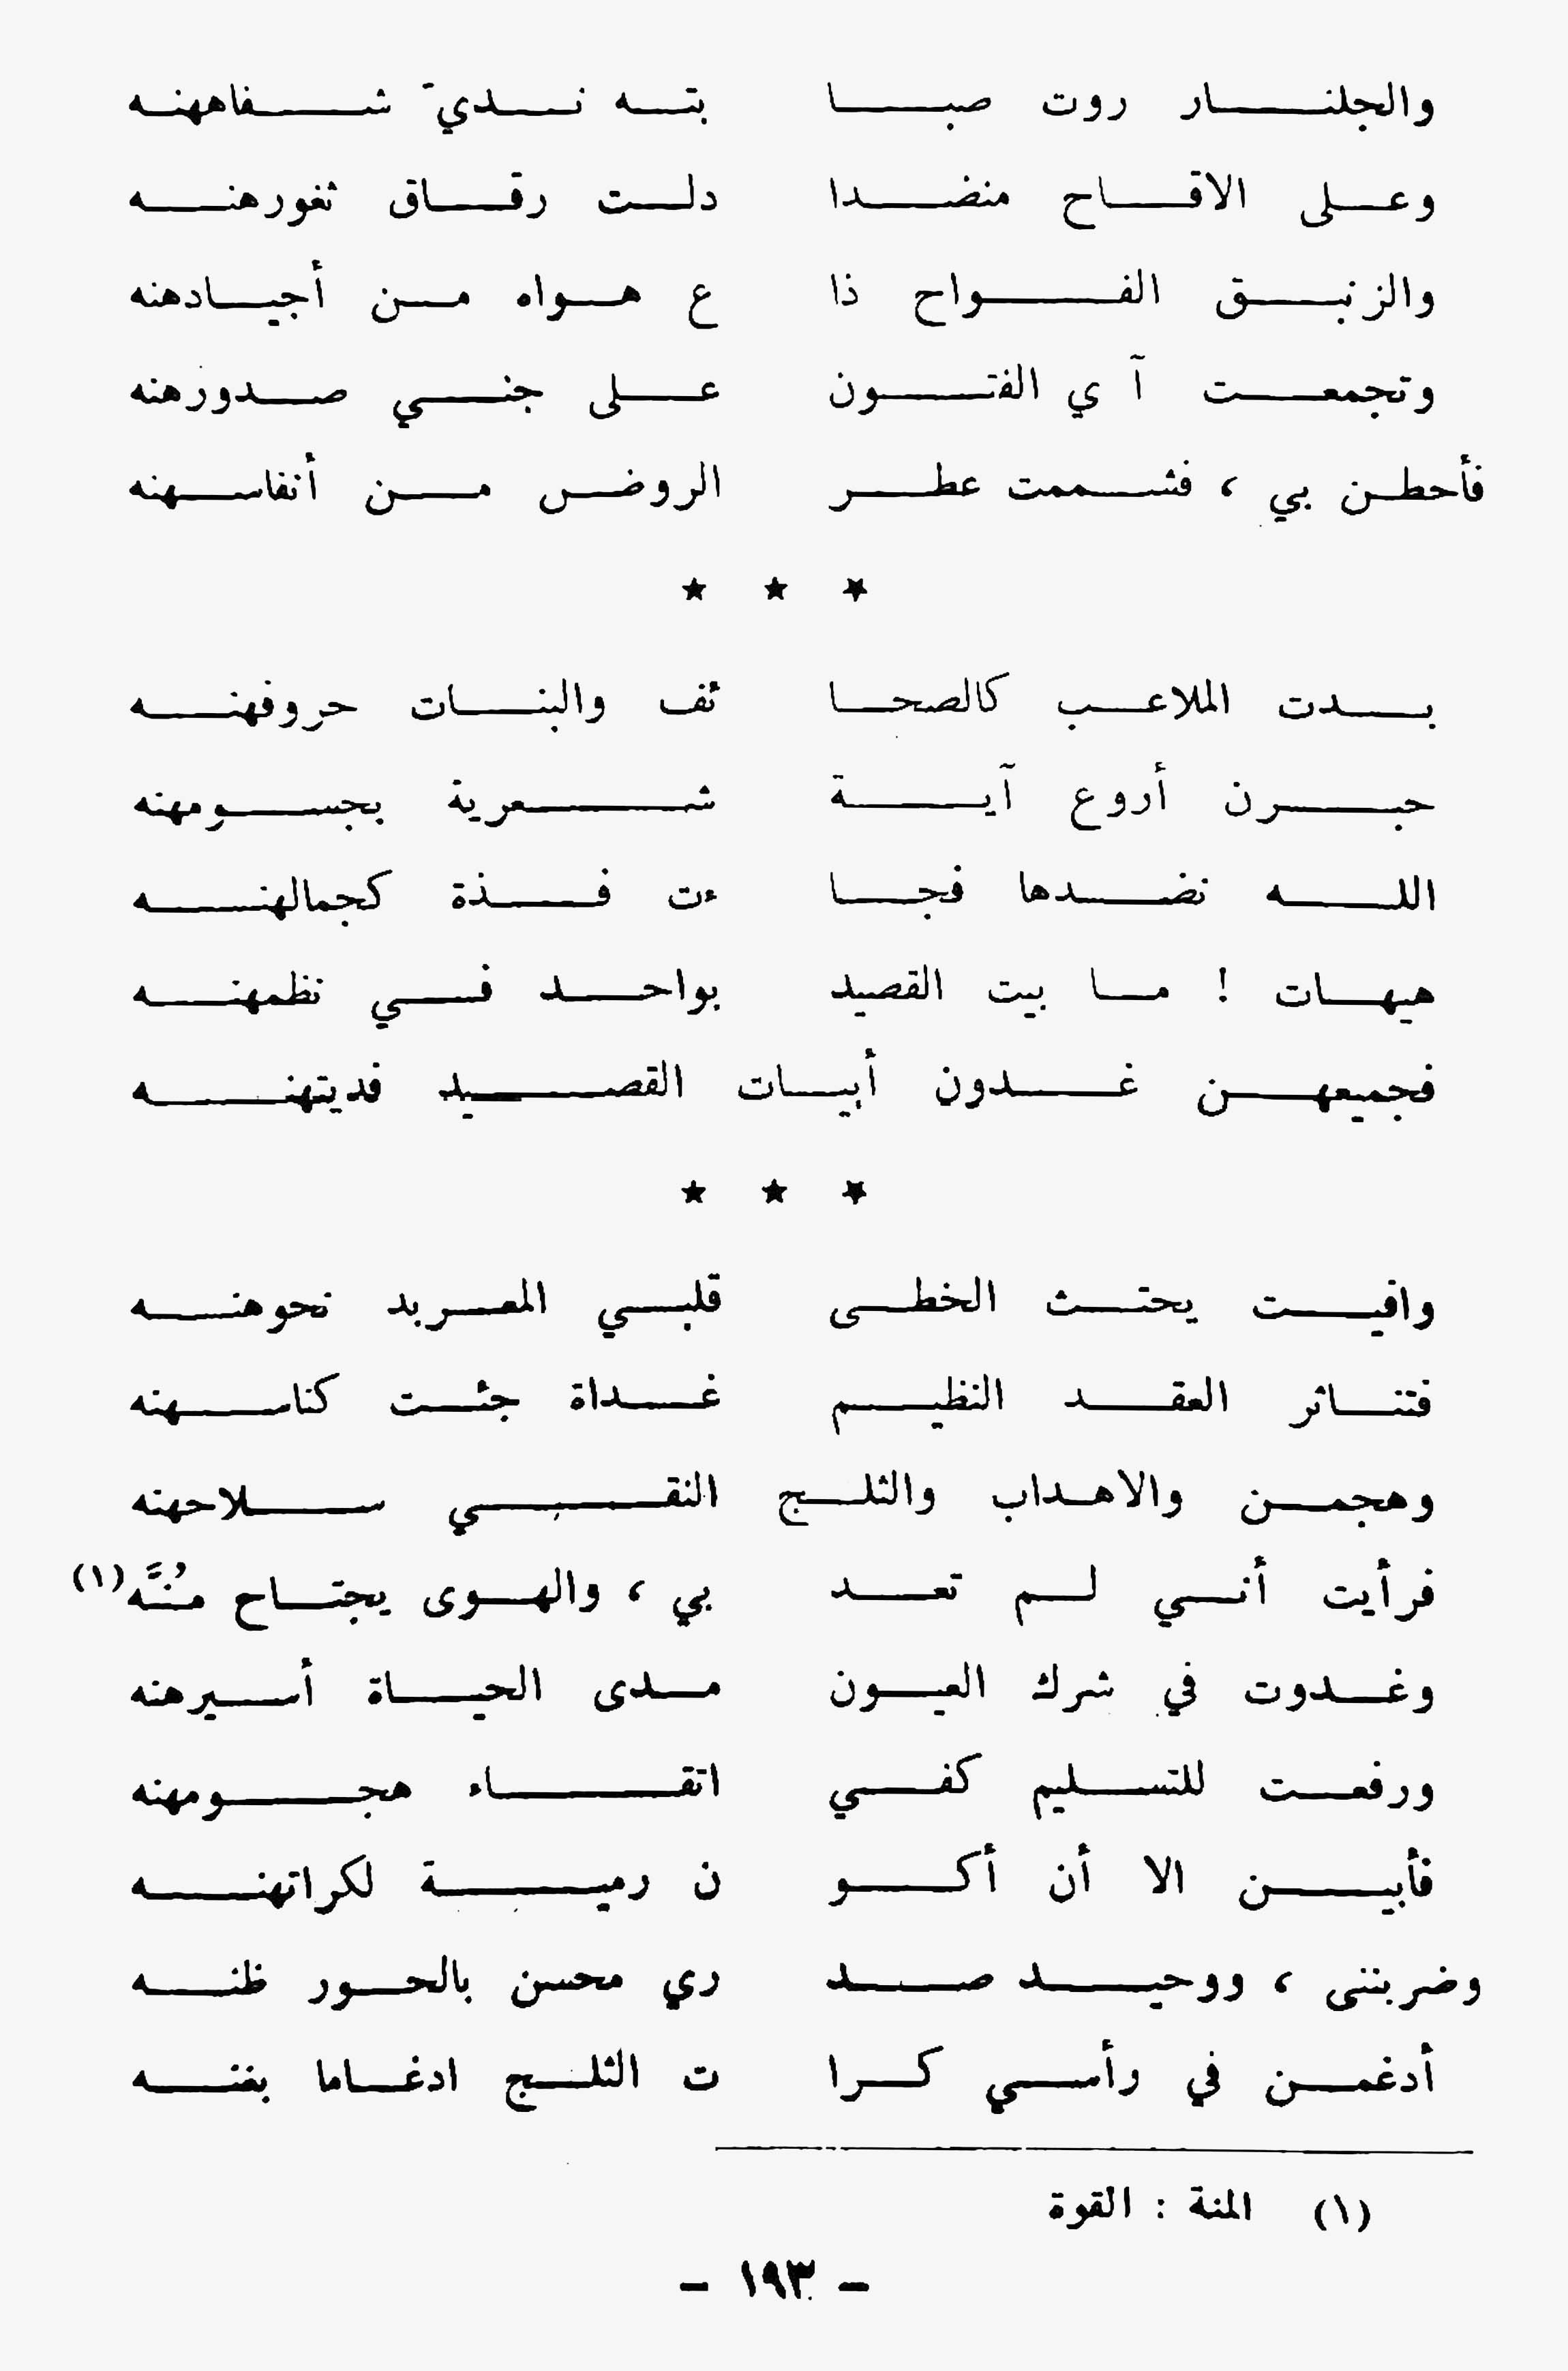 والجلنار روت صبا بته نديّ شفاههنه
وعلى الاقاح منضدا دلت رقاق ثغورهنه
والزنبق الفواح ذا ع هواه من أجيادهنه
وتجمعت آ ي الفتون على جني صدورهنه
فأحطن بي ، فشممت عطر الروض من أنفاسهنه
★ ★ ★
بدت الملاعب كالصحا ئف والبنات حروفهنه
حبرن أروع آية شعرية بجسومهنه
الله نضدها فجا ءت فذة كجمالهنه
هيهات ! ما بيت القصيد بواحد في نظمهنه
فجميعهن غدون أبيات القصيد فديتهنه
★ ★ ★
وافيت يحتث الخطى قلبي المعربد نحوهنه
فتناثر العقد النظيم غداة جئت كناسهنه
وهجمن والاهداب والثلج النقي سلاحهنه
فرأيت أني لم تعد بي ، والهوى يجتاح مُنَّه (١)
وغدوت في شرك العيون مدى الحياة أسيرهنه
ورفعت للتسليم كفي اتقاء هجومهنه
فأبين الا أن أكو ن رمية لكراتهنه
وضربننى ، ووحيد صد ري محسن بالحور ظنه
أدغمن في رأسي كرا ت الثلج ادغاما بغنه
(١) المنة : القوة
- ١٩٣ -